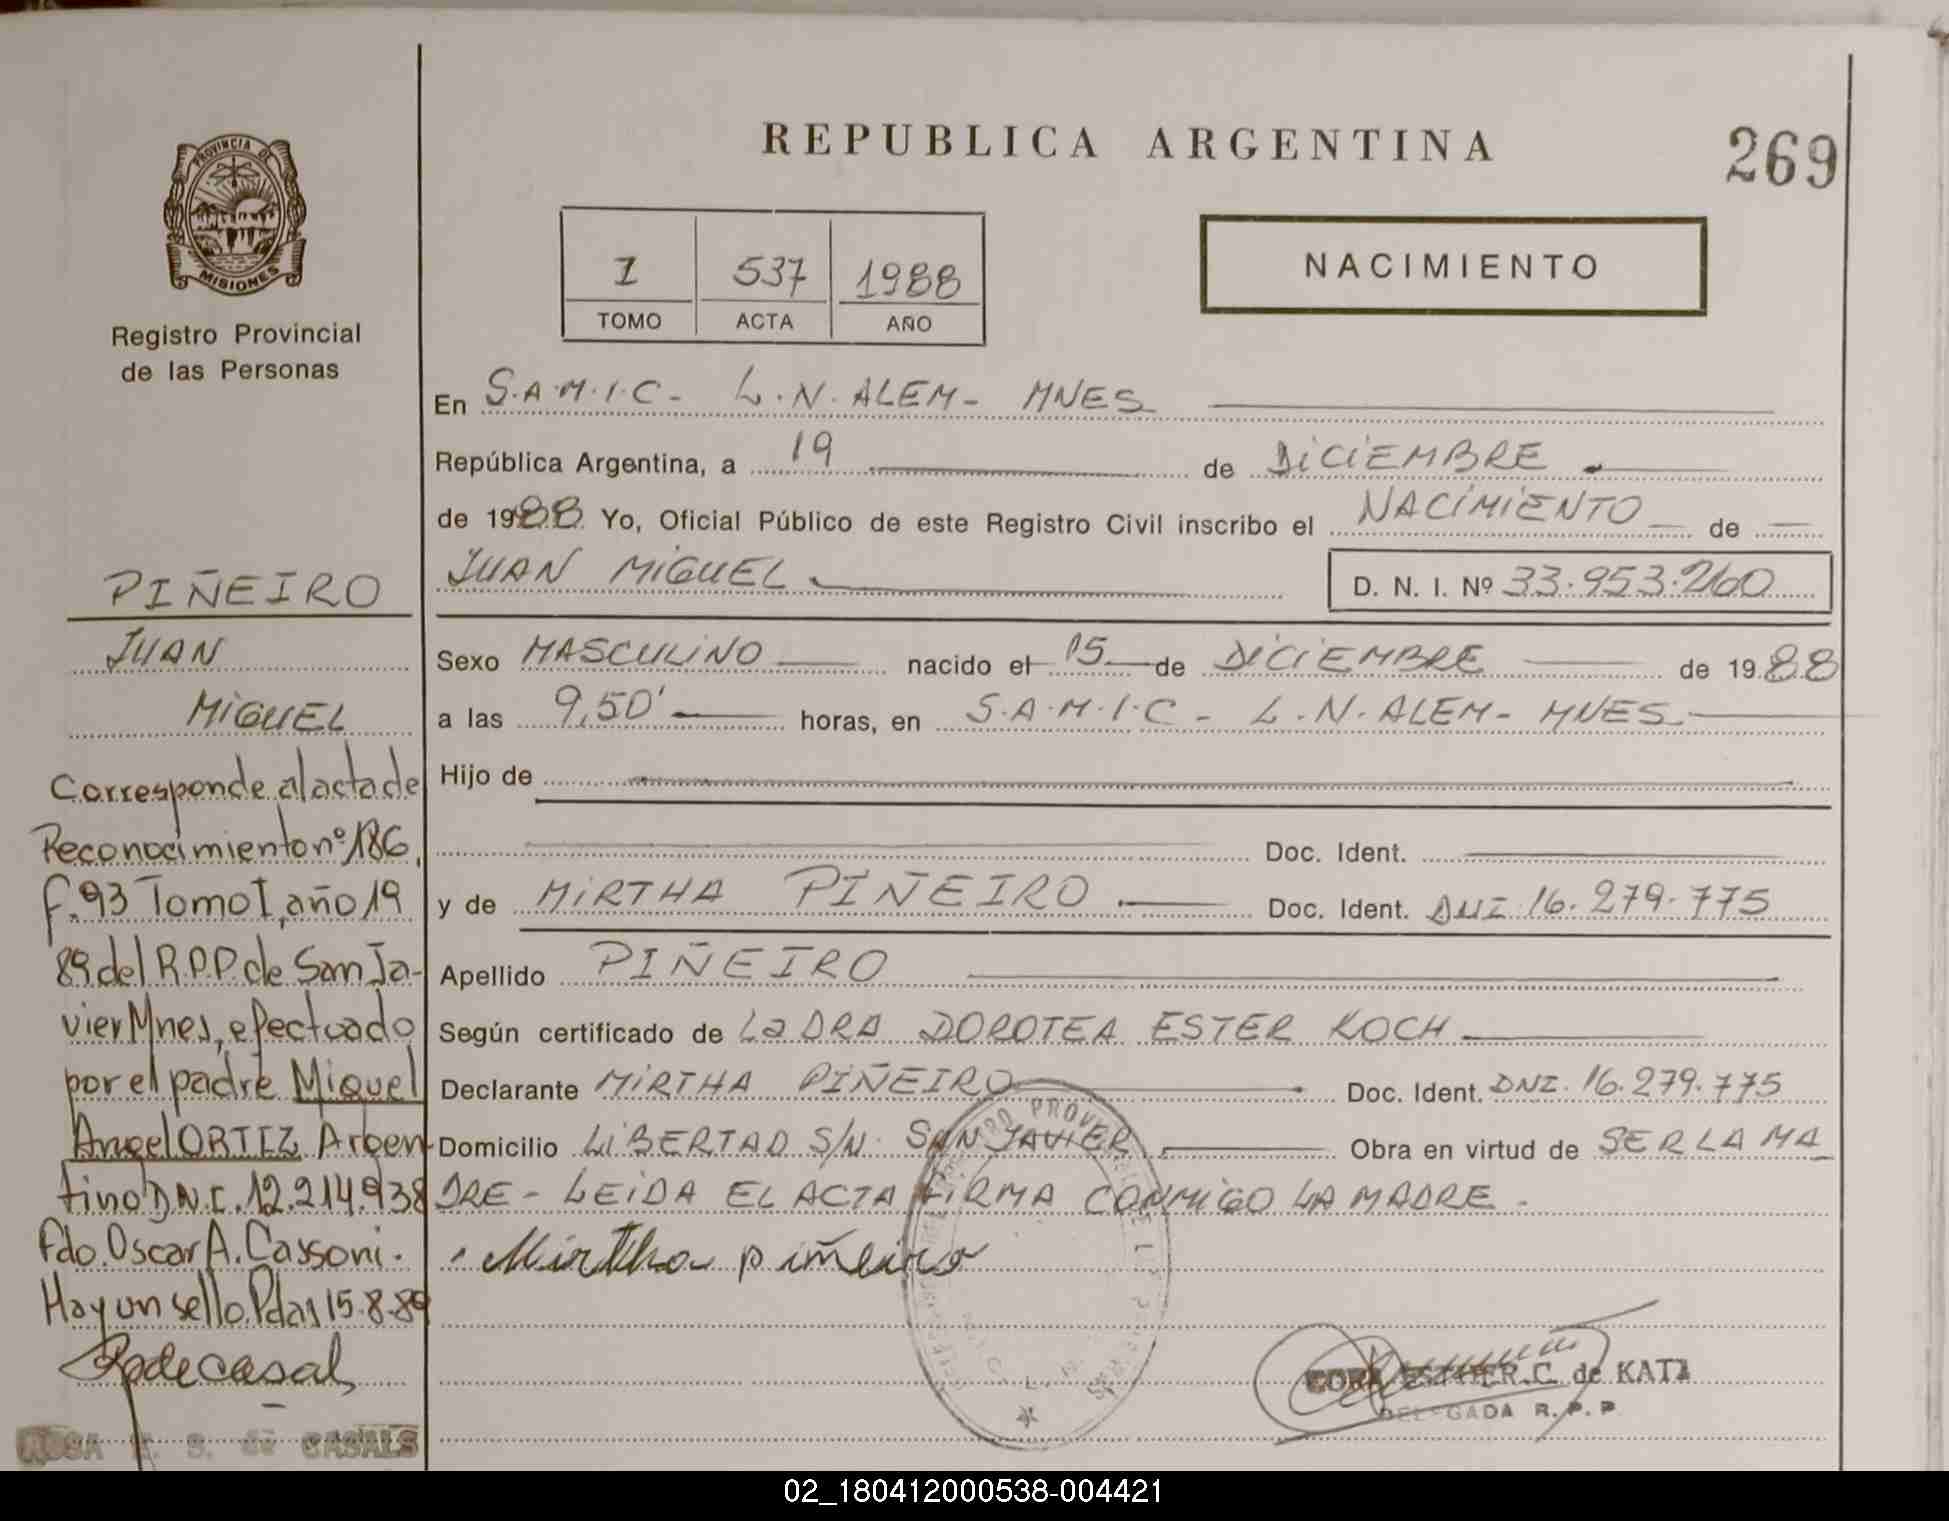 PROVINCIA DE
MISIONES
Registro Provincial
de las Personas
PIÑEIRO
JUAN
MIGUEL
Corresponde al acta de
Reconocimiento nº 186,
f. 93 Tomo I, año 19
89 del R.P.P. de San Ja-
vier Mnes, efectuado
por el padre Miguel
Angel ORTIZ Argen-
tino D.N.I. 12.214.938
Fdo. Oscar A. Cassoni.
Hay un sello. Pdas 15.8.89
ROSA S. de CASALS
REPUBLICA ARGENTINA
269
I 537 1988
TOMO ACTA AÑO
NACIMIENTO
En S.A.M.I.C - L.N. ALEM - MNES
República Argentina, a 19 de DICIEMBRE
de 1988 Yo, Oficial Público de este Registro Civil inscribo el NACIMIENTO de
JUAN MIGUEL D. N. I. Nº 33.953.260
Sexo MASCULINO nacido el 15 de DICIEMBRE de 1988
a las 9,50' horas, en S.A.M.I.C - L.N. ALEM - MNES
Hijo de
Doc. Ident.
y de MIRTHA PIÑEIRO Doc. Ident. DNI 16.279.775
Apellido PIÑEIRO
Según certificado de La DRA DOROTEA ESTER KOCH
Declarante MIRTHA PIÑEIRO Doc. Ident. DNI. 16.279.775
Domicilio LIBERTAD S/N. SAN JAVIER Obra en virtud de SER LA MA
DRE - LEIDA EL ACTA FIRMA CONMIGO LA MADRE.
Mirtha piñeiro
CORA ESTHER C. de KATZ
DELEGADA R. P. P.
02_180412000538-004421